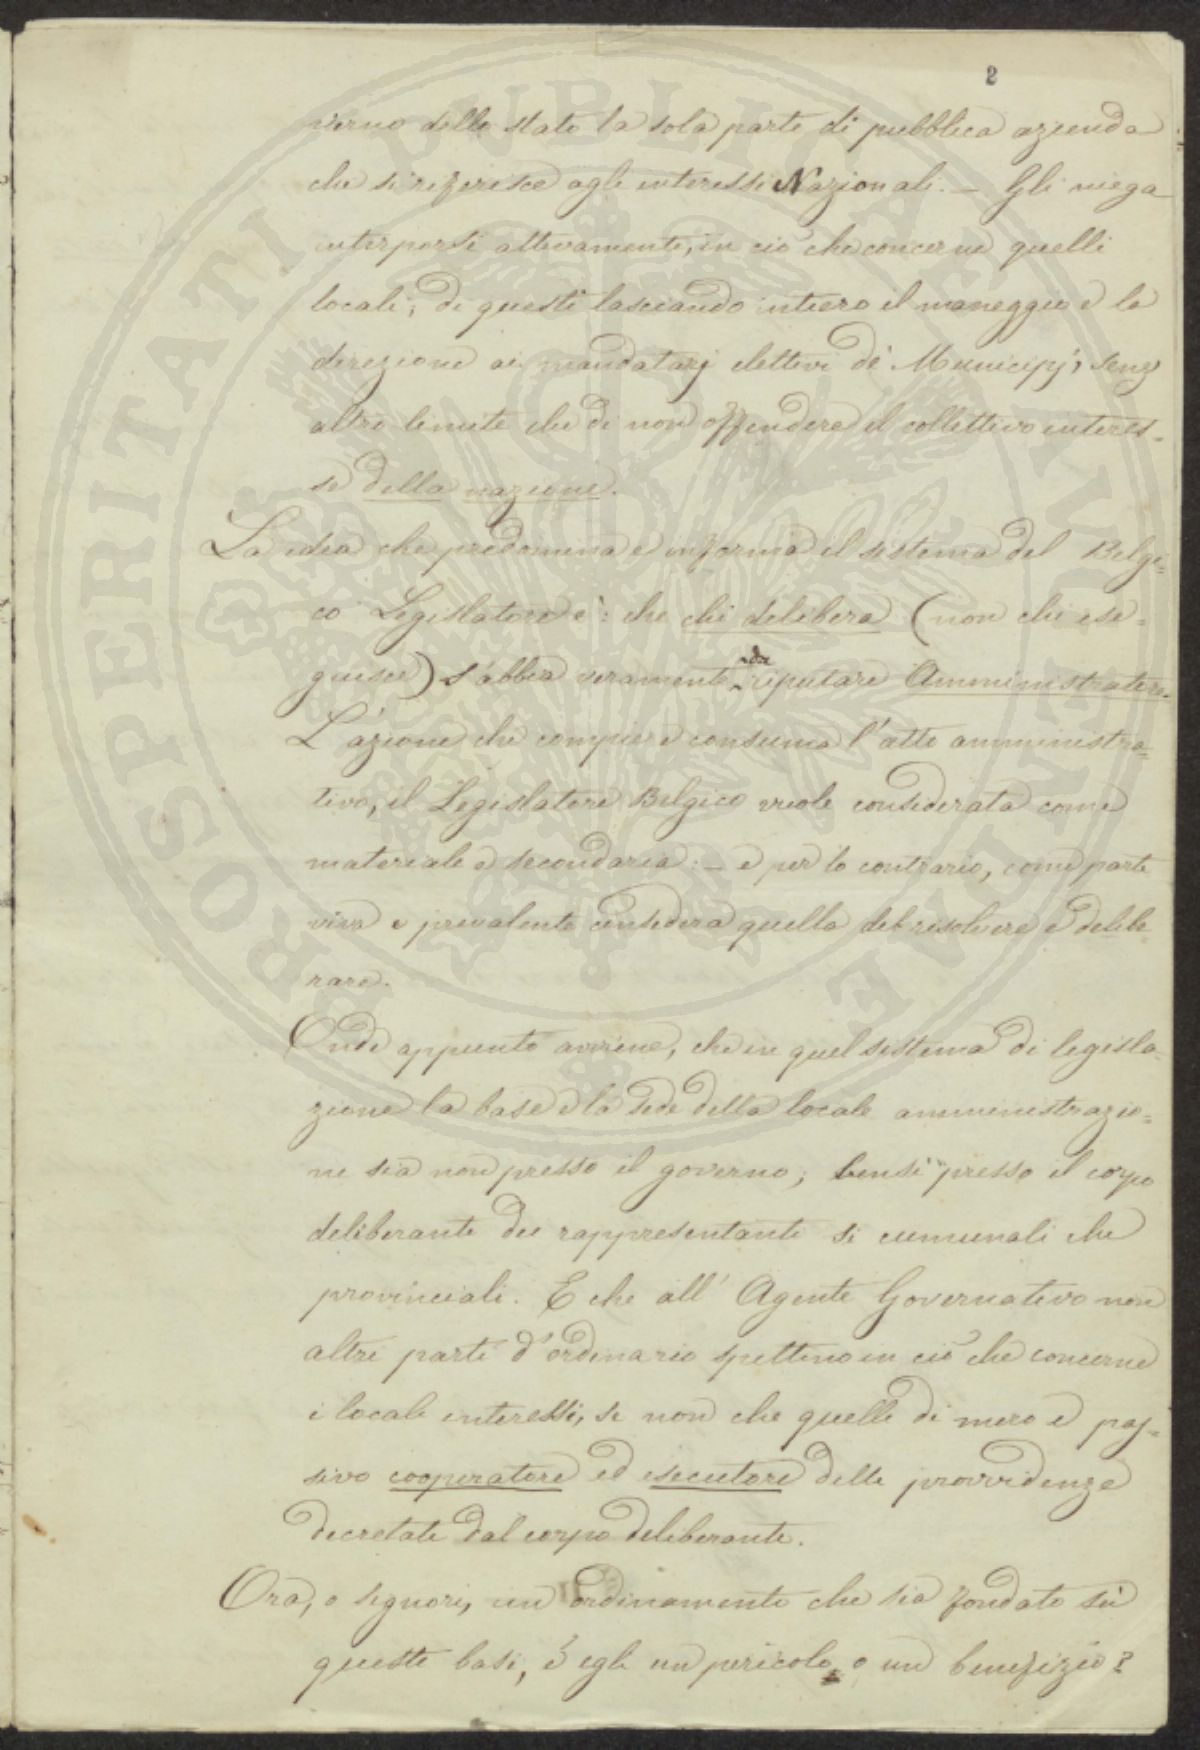 2
verno dello stato la sola parte di pubblica azienda
che si riferisce agli interessi Nazionali. — Gli niega
interporsi attivamente, in ciò che concerne quelli
locali; di questi lasciando intiero il maneggio e la
direzione ai mandatarj elettivi de' Municipj, senz'
altro limite che di non offendere il collettivo interes-
se della nazione.
La idea che predomina e informa il sistema del Belgi-
co Legislatore è: che chi delibera (non chi ese-
guisce) s'abbia veramente da riputare Amministratore.
L'azione che compie e consuma l'atto amministra-
tivo, il Legislatore Belgico vuole considerata come
materiale e secondaria: — e per lo contrario, come parte
viva e prevalente considera quella del risolvere e delibe
rare.
Onde appunto avviene, che in quel sistema di legisla-
zione la base e la sede della locale amministrazio-
ne sia non presso il governo; bensì presso il corpo
deliberante dei rappresentanti sì cumunali che
provinciali. E che all'Agente Governativo non
altre parti d'ordinario spettino in ciò che concerne
i locali interessi, se non che quelle di mero e pas-
sivo cooperatore ed esecutore delle provvidenze
decretate dal corpo deliberante.
Ora, o signori, un ordinamento che sia fondato su
queste basi, è egli un pericolo o un benefizio?
PROSPERITATI PUBLICAE